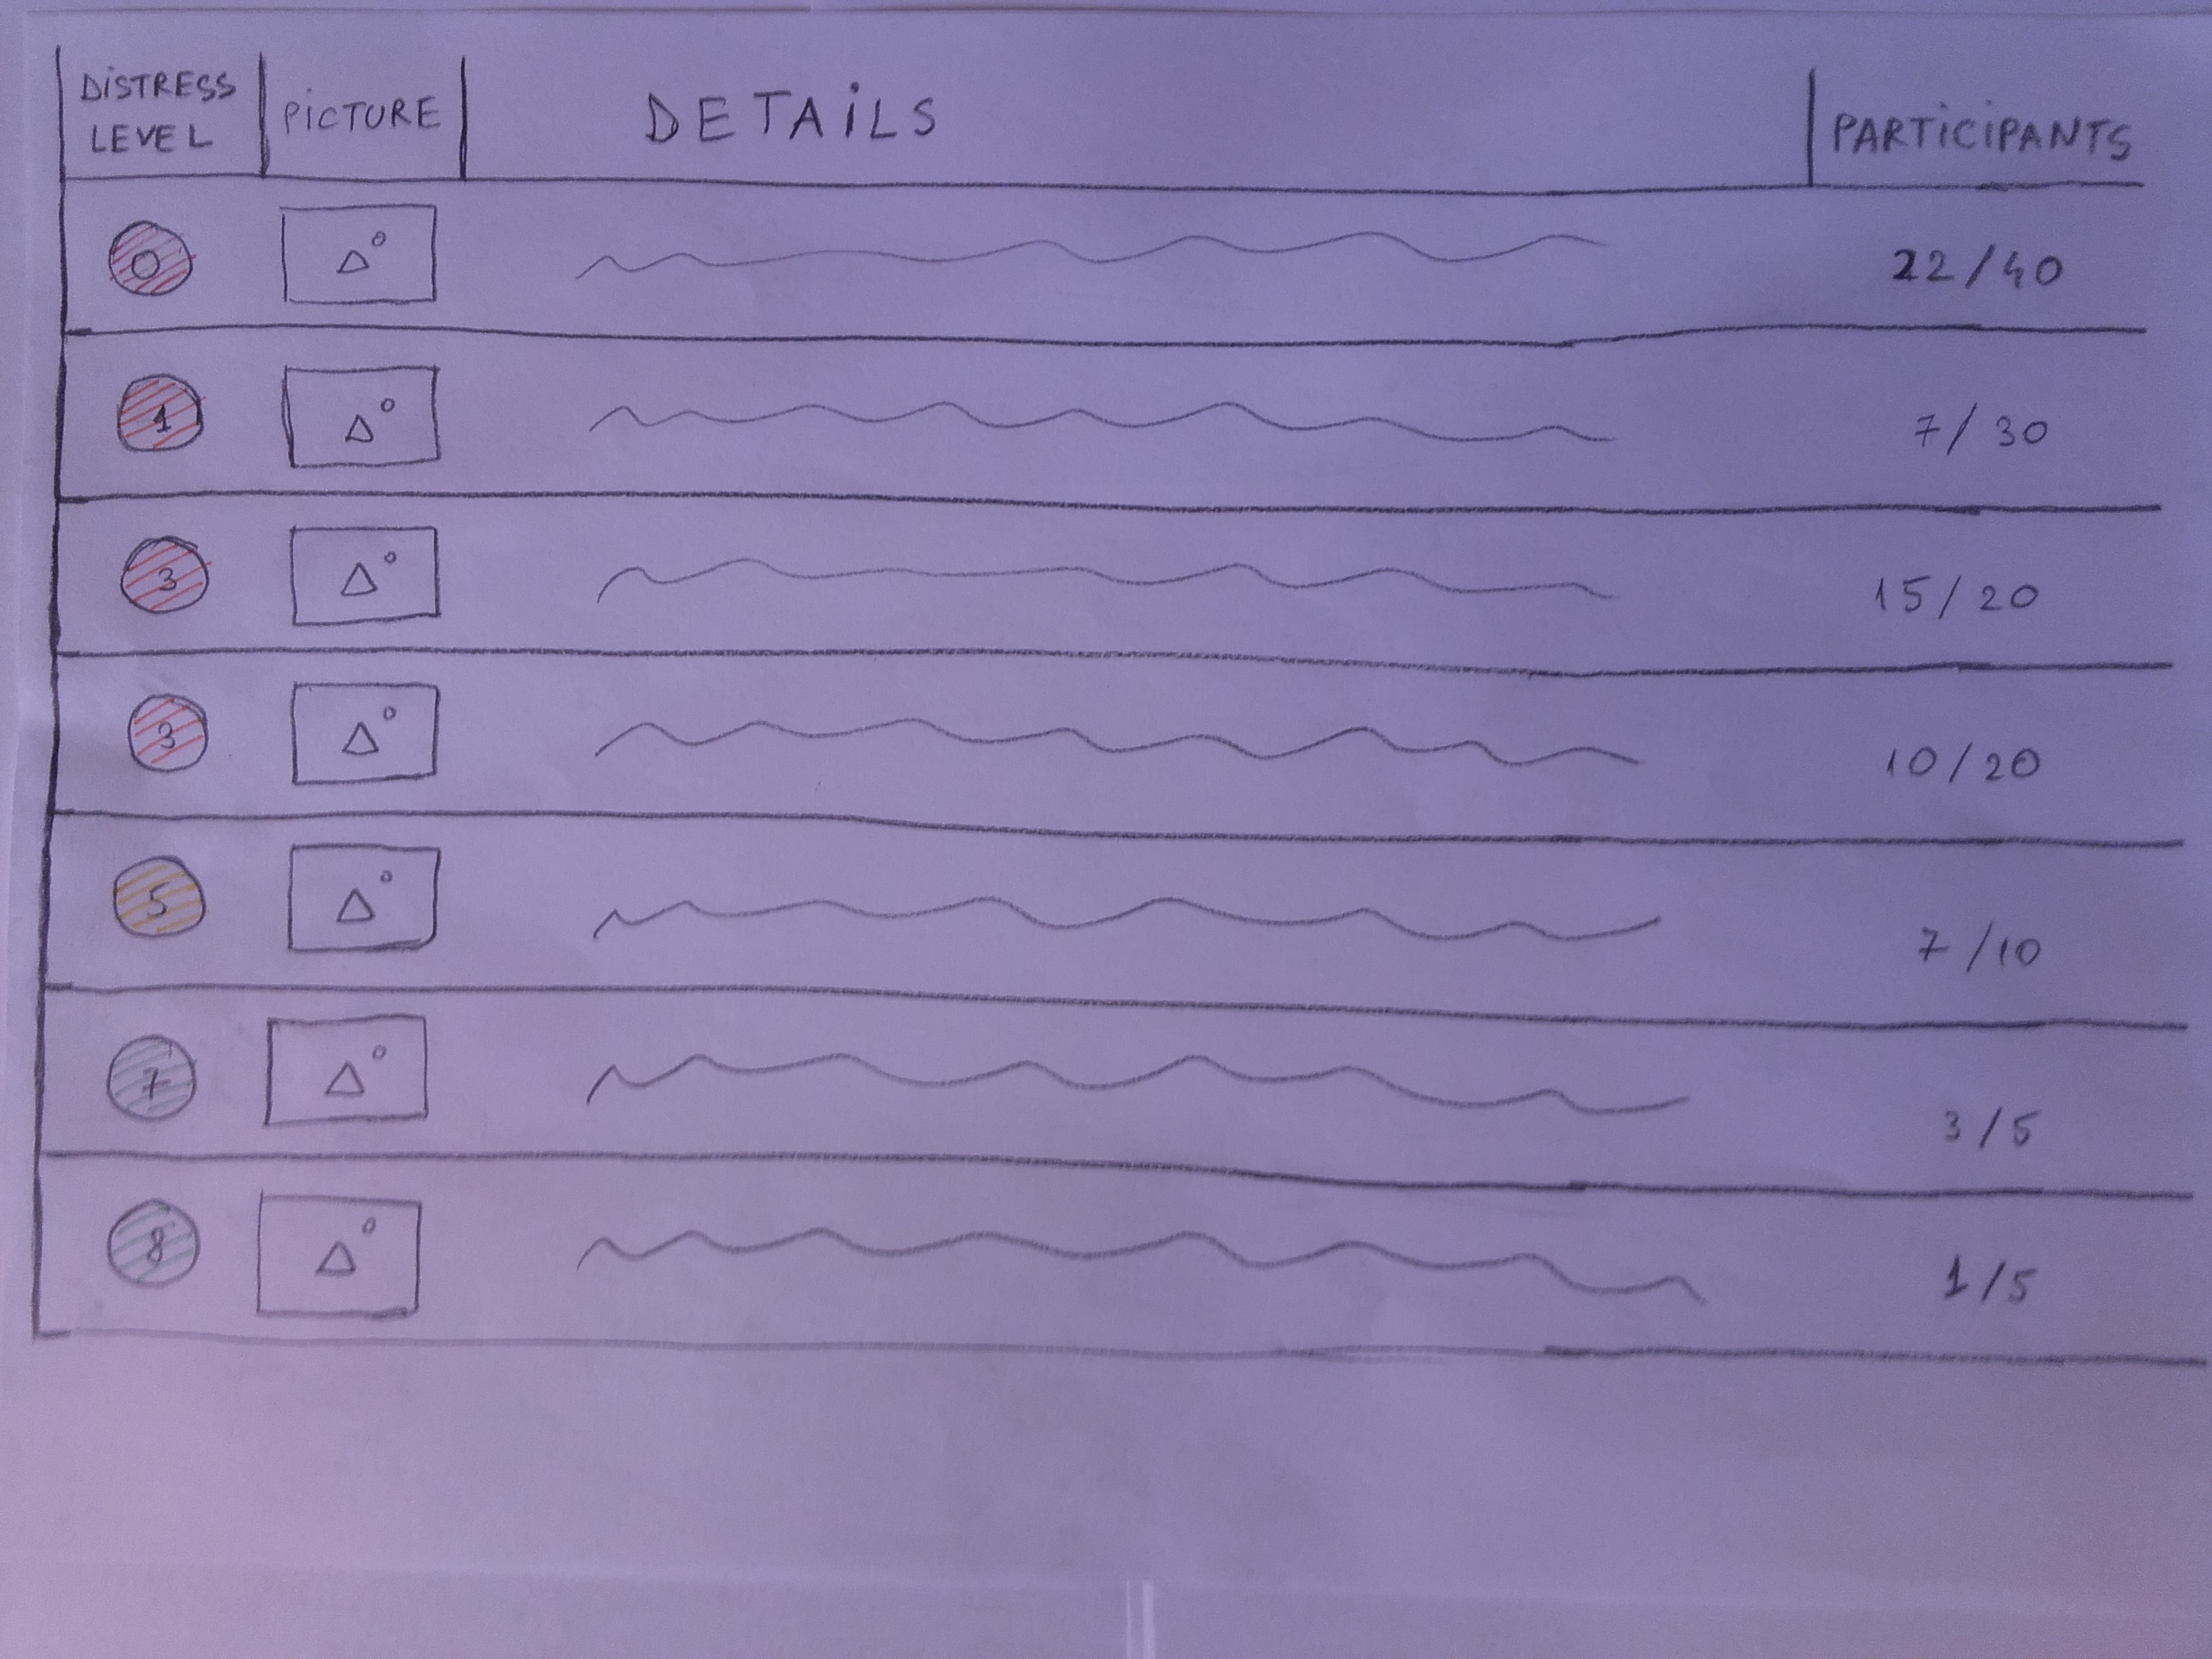 DISTRESS LEVEL PICTURE DETAILS PARTICIPANTS
0 22/40
1 7/30
3 15/20
3 10/20
5 7/10
7 3/5
8 1/5